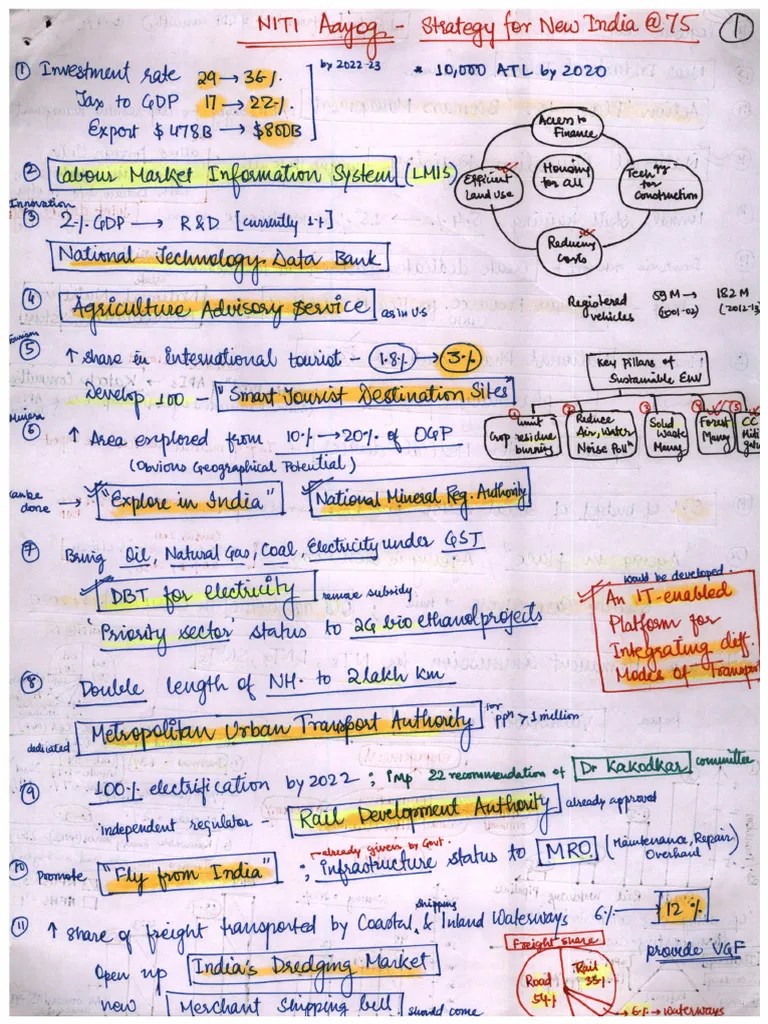 NITI Aayog - Strategy for New India @ 75
1
① Investment rate 29 → 36%
Tax to GDP 17 → 22%
Export $ 478B → $800B
by 2022-23
* 10,000 ATL by 2020
Access to Finance
Efficient Land use
Housing for all
Tech^gy for Construction
Reducing Costs
② Labour Market Information System (LMIS)
Innovation
③ 2% GDP → R&D [currently 1%]
National Technology Data Bank
④ Agriculture Advisory Service as in U.S
Registered vehicles 59M (2001-02) → 182 M (2012-13
Tourism
⑤ ↑ share in international tourist - 1.8% → 3%
Develop 100 - "Smart Tourist Destination Sites"
Key Pillars of Sustainable Env
① Limit Crop residue burning
② Reduce Air, Water Noise Poll^n
③ Solid Waste Mang
④ Forest Mang
⑤ CC Miti
⑥ ↑ Area explored from 10% → 20% of OGP
(Obvious Geographical Potential)
can be done → "Explore in India" National Mineral Reg. Authority
⑦ Bring Oil, Natural Gas, Coal, Electricity under GST
DBT for electricity remove subsidy
'Priority sector' status to 2G bio ethanol projects
would be developed.
An IT-enabled
Platform for
Integrating diff.
Modes of Transport
⑧ Double length of NH. to 2 lakh km
dedicated Metropolitan Urban Transport Authority for pp^n > 1 million
⑨ 100% electrification by 2022 ; imp 22 recommendation of Dr Kakodkar committee
independent regulator - Rail Development Authority already approved
already given by Govt.
⑩ Promote "Fly from India" ; infrastructure status to MRO (Maintenance, Repair, Overhaul)
shipping
⑪ ↑ share of freight transported by Coastal & Inland Waterways 6% → 12%
Open up India's Dredging Market
provide VGF
new Merchant Shipping bill should come
Freight share
Road 54%
Rail 33%
→ 6% → waterways